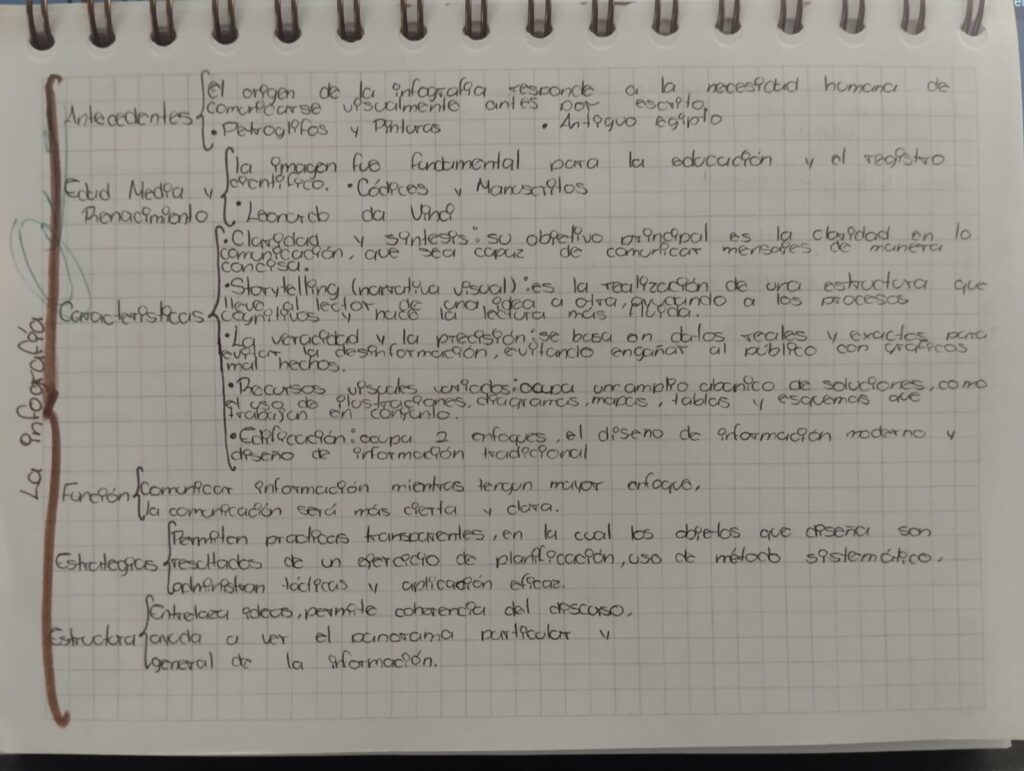 La infografía
Antecedentes
El origen de la infografía responde a la necesidad humana de
comunicarse visualmente antes por escrito.
• Petroglifos y Pinturas • Antiguo egipto
Edad Media y
Renacimiento
la imagen fue fundamental para la educación y el registro
científico. • Códices y Manuscritos
• Leonardo da Vinci
Características
• Claridad y síntesis: su objetivo principal es la claridad en la
comunicación, que sea capaz de comunicar mensajes de manera
concisa.
• Storytelling (narrativa visual): es la realización de una estructura que
lleve al lector de una idea a otra, ayudando a los procesos
cognitivos y hace la lectura más fluida.
• La veracidad y la precisión: se basa en datos reales y exactos para
evitar la desinformación, evitando engañar al público con gráficos
mal hechos.
• Recursos visuales variados: ocupa un amplio abanico de soluciones, como
el uso de ilustraciones, diagramas, mapas, tablas y esquemas que
trabajan en conjunto.
• ocupa 2 enfoques, el diseño de información moderno y
diseño de información tradicional
Función
Comunicar información mientras tengan mayor enfoque,
la comunicación será más cierta y clara.
Estrategias
Permiten practicas transparentes, en la cual los objetos que diseña son
resultados de un ejercicio de planificación, uso de método sistemático.
tácticas y aplicación eficaz.
Estructura
Entrelaza ideas, permite coherencia del discurso,
ayuda a ver el panorama particular y
general de la información.